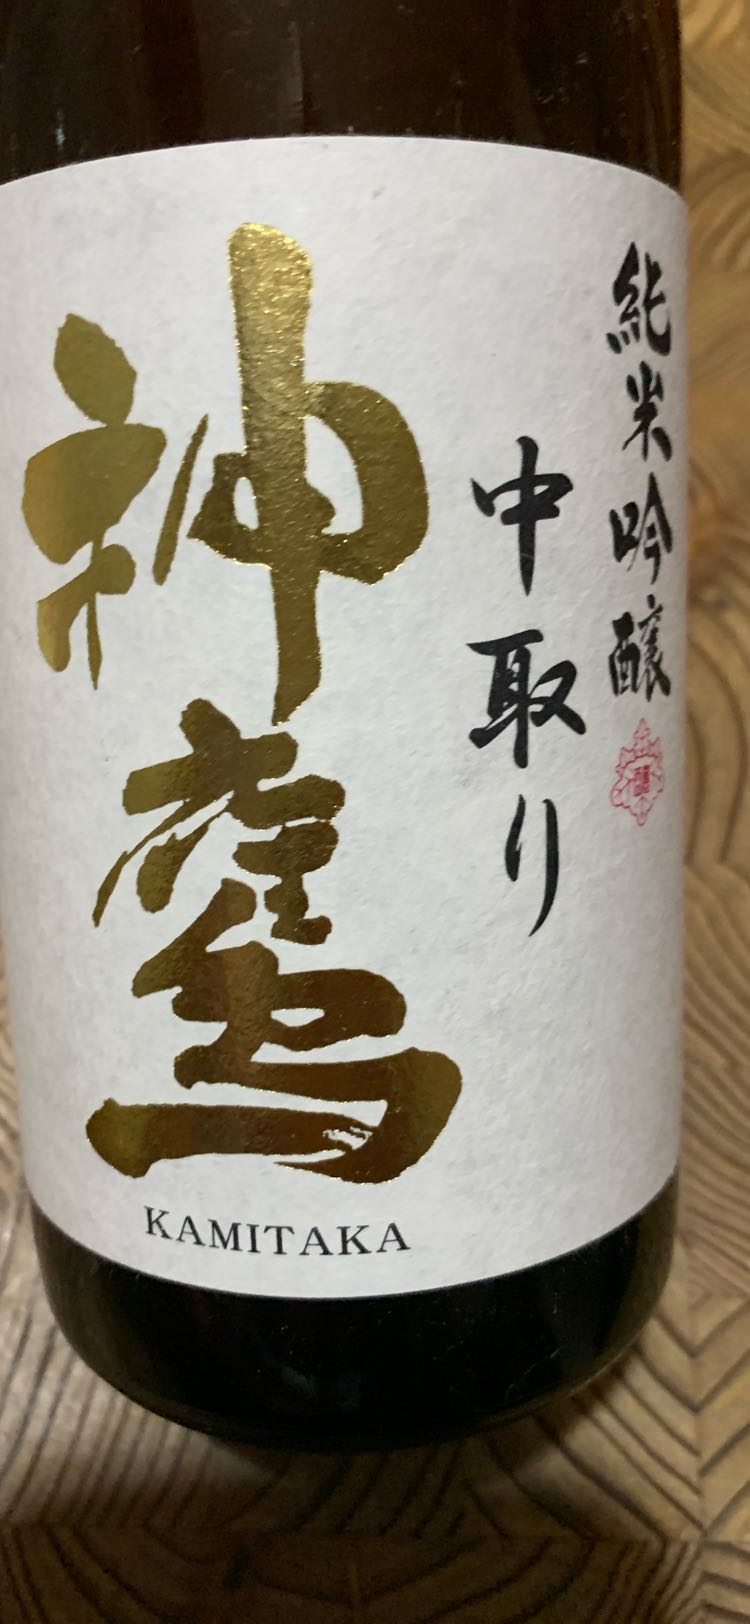 純米吟醸
中取り
神鷹
KAMITAKA